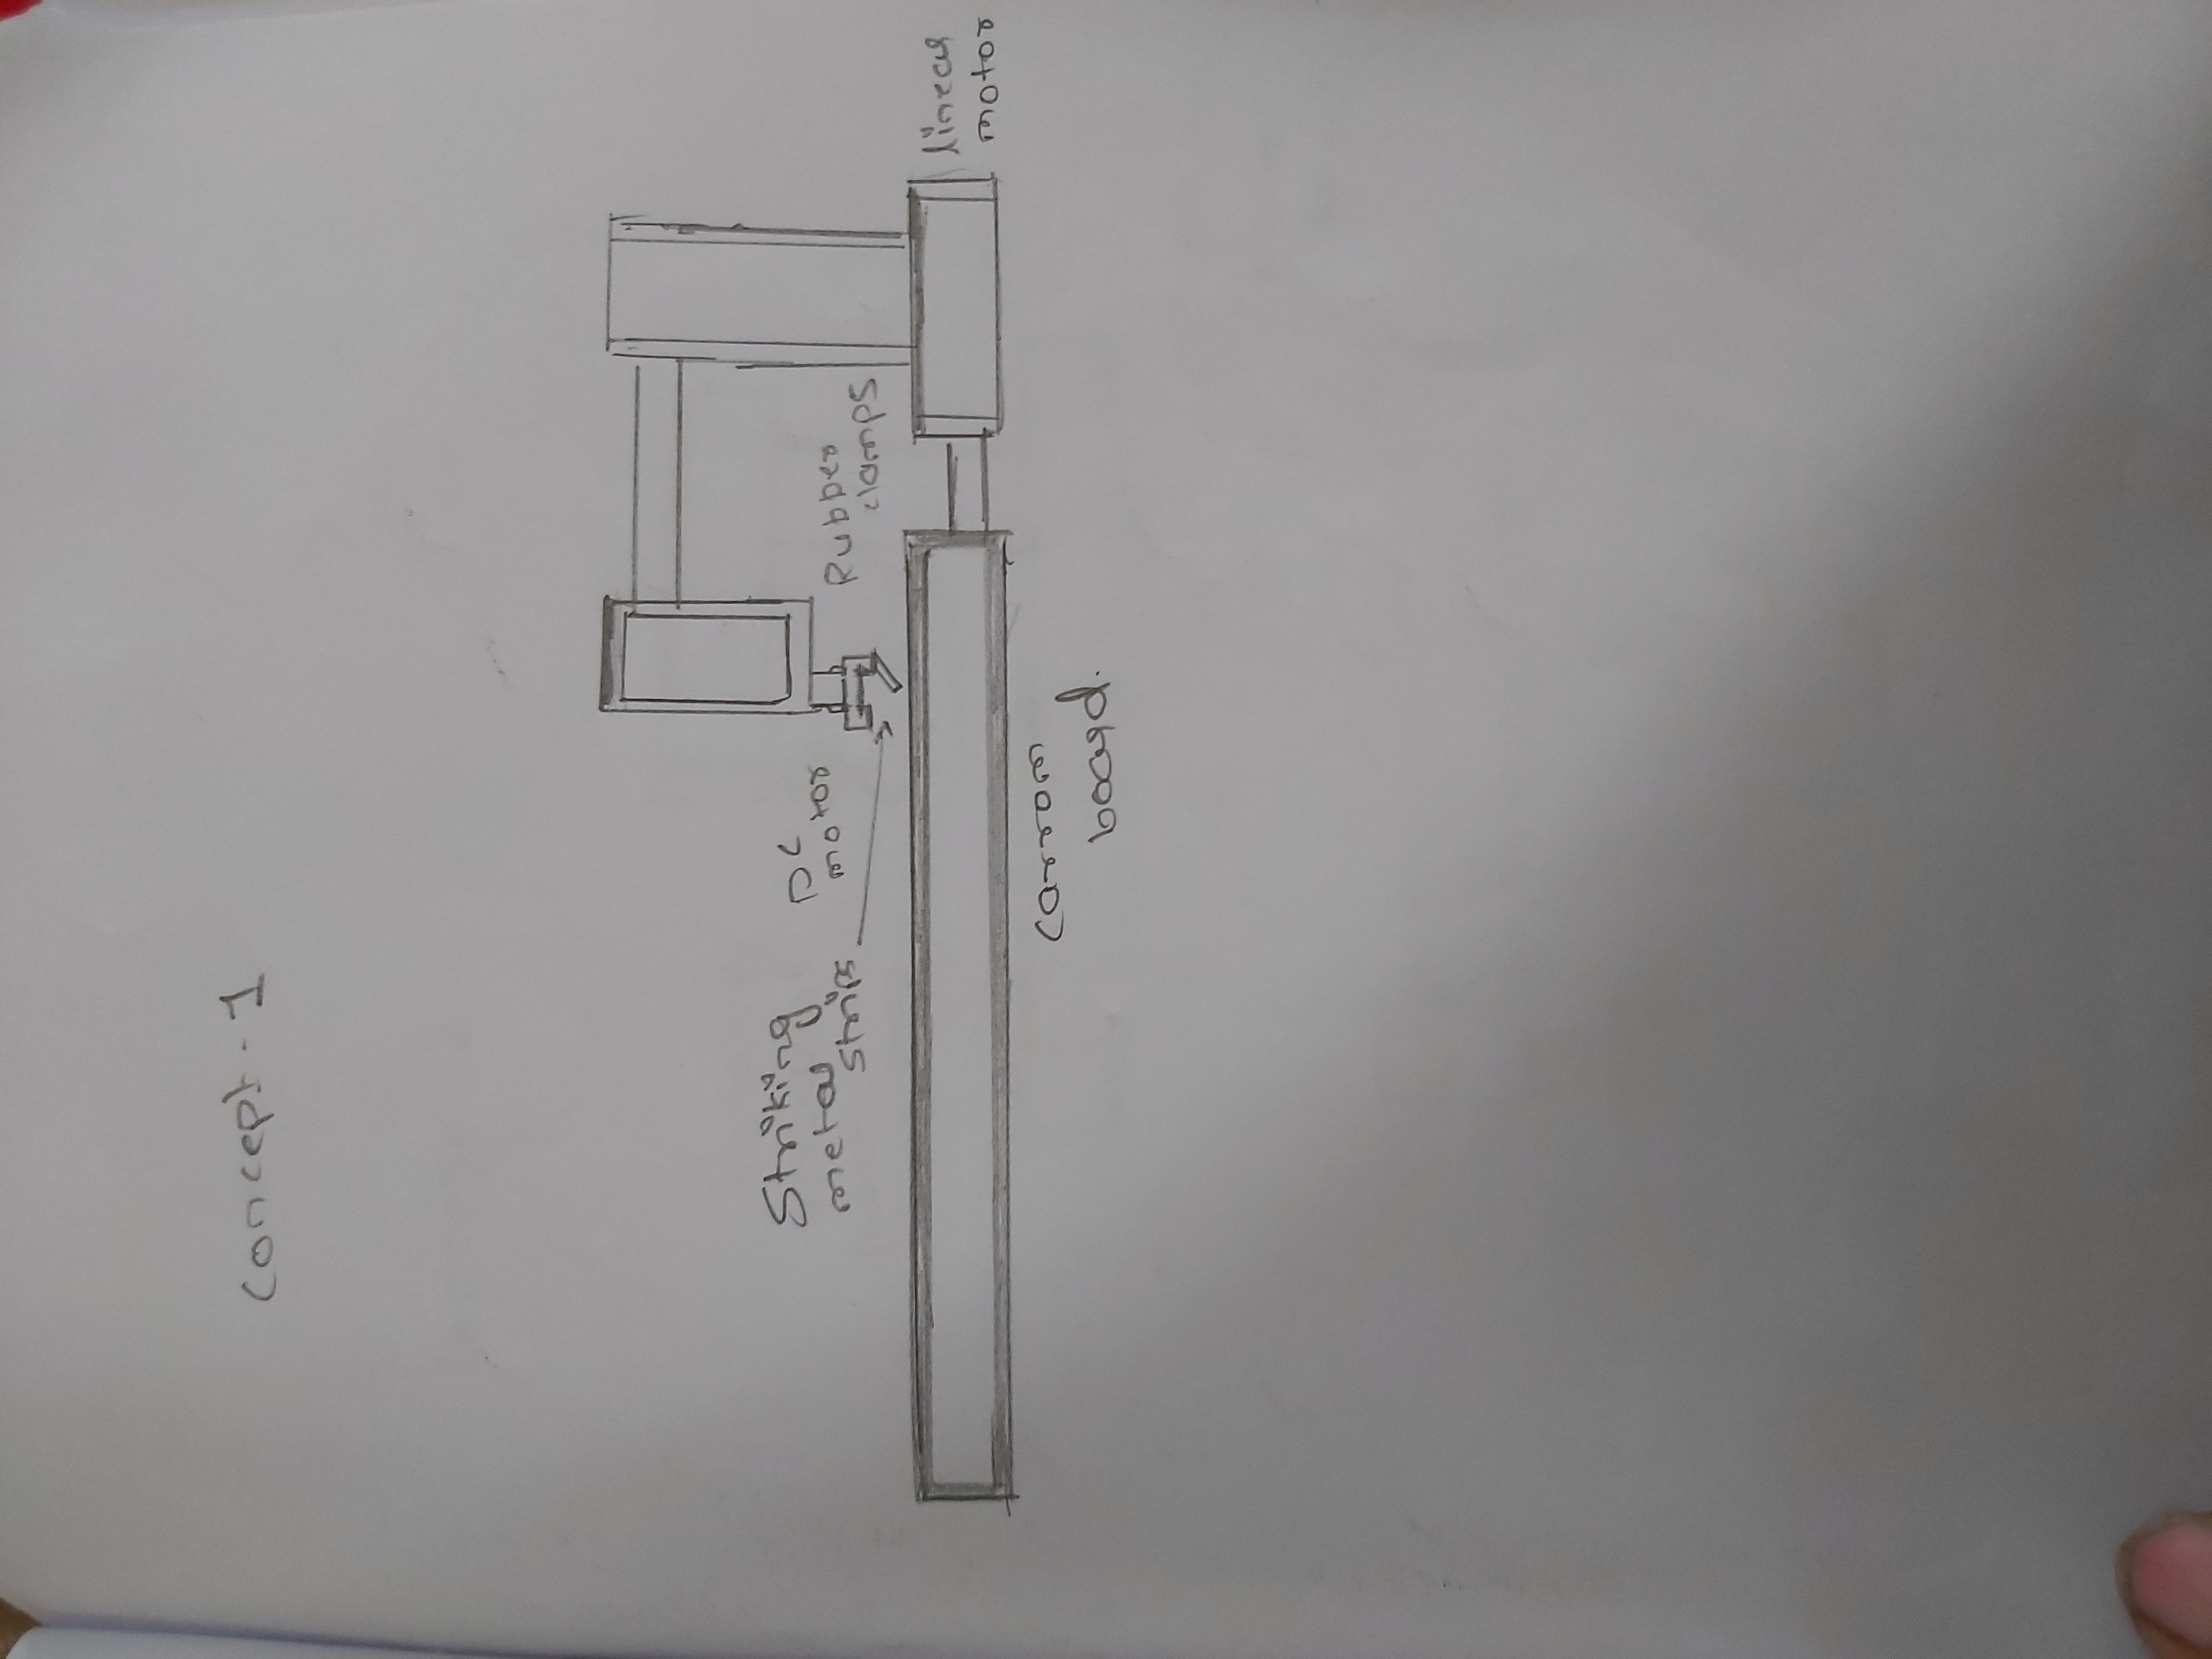 Concept-1
Striking
metal
strips
DC
motor
Rubber
clamps
linear
motor
carrom
board.